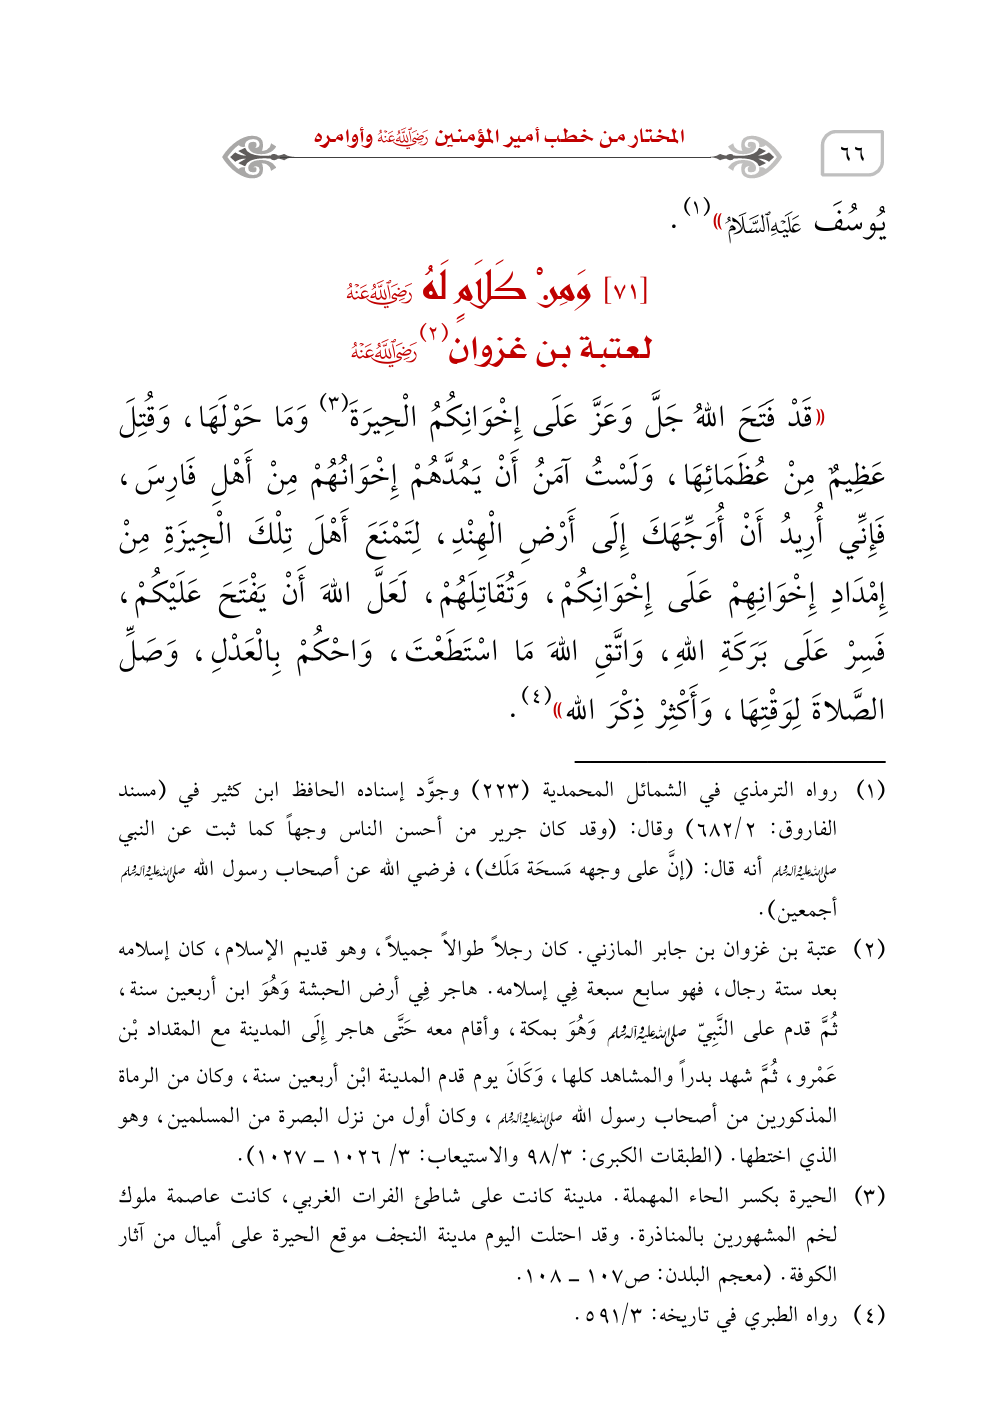 ٦٦
المختار من خطب أمير المؤمنين رَضِيَ اللَّهُ عَنْهُ وأوامره
يُوسُفَ عَلَيْهِ السَّلَامُ»(١).
[٧١] وَمِنْ كَلَامٍ لَهُ رَضِيَ اللَّهُ عَنْهُ
لعتبة بن غزوان(٢) رَضِيَ اللَّهُ عَنْهُ
«قَدْ فَتَحَ اللهُ جَلَّ وَعَزَّ عَلَى إِخْوَانِكُمُ الْحِيرَةَ(٣) وَمَا حَوْلَهَا، وَقُتِلَ
عَظِيمٌ مِنْ عُظَمَائِهَا، وَلَسْتُ آمَنُ أَنْ يَمُدَّهُمْ إِخْوَانُهُمْ مِنْ أَهْلِ فَارِسَ،
فَإِنِّي أُرِيدُ أَنْ أُوَجِّهَكَ إِلَى أَرْضِ الْهِنْدِ، لِتَمْنَعَ أَهْلَ تِلْكَ الْجِيزَةِ مِنْ
إِمْدَادِ إِخْوَانِهِمْ عَلَى إِخْوَانِكُمْ، وَتُقَاتِلَهُمْ، لَعَلَّ اللهَ أَنْ يَفْتَحَ عَلَيْكُمْ،
فَسِرْ عَلَى بَرَكَةِ اللهِ، وَاتَّقِ اللهَ مَا اسْتَطَعْتَ، وَاحْكُمْ بِالْعَدْلِ، وَصَلِّ
الصَّلاةَ لِوَقْتِهَا، وَأَكْثِرْ ذِكْرَ الله»(٤).
(١) رواه الترمذي في الشمائل المحمدية (٢٢٣) وجوَّد إسناده الحافظ ابن كثير في (مسند
الفاروق: ٦٨٢/٢) وقال: (وقد كان جرير من أحسن الناس وجهاً كما ثبت عن النبي
صلى الله عليه وآله وسلم أنه قال: (إنَّ على وجهه مَسحَة مَلَك)، فرضي الله عن أصحاب رسول الله صلى الله عليه وآله وسلم
أجمعين).
(٢) عتبة بن غزوان بن جابر المازني. كان رجلاً طوالاً جميلاً، وهو قديم الإسلام، كان إسلامه
بعد ستة رجال، فهو سابع سبعة فِي إسلامه. هاجر فِي أرض الحبشة وَهُوَ ابن أربعين سنة،
ثُمَّ قدم على النَّبِيّ صلى الله عليه وآله وسلم وَهُوَ بمكة، وأقام معه حَتَّى هاجر إِلَى المدينة مع المقداد بْن
عَمْرو، ثُمَّ شهد بدراً والمشاهد كلها، وَكَانَ يوم قدم المدينة ابْن أربعين سنة، وكان من الرماة
المذكورين من أصحاب رسول الله صلى الله عليه وآله وسلم، وكان أول من نزل البصرة من المسلمين، وهو
الذي اختطها. (الطبقات الكبرى: ٩٨/٣ والاستيعاب: ٣/ ١٠٢٦ ـ ١٠٢٧).
(٣) الحيرة بكسر الحاء المهملة. مدينة كانت على شاطئ الفرات الغربي، كانت عاصمة ملوك
لخم المشهورين بالمناذرة. وقد احتلت اليوم مدينة النجف موقع الحيرة على أميال من آثار
الكوفة. (معجم البلدن: ص١٠٧ ـ ١٠٨.
(٤) رواه الطبري في تاريخه: ٥٩١/٣.